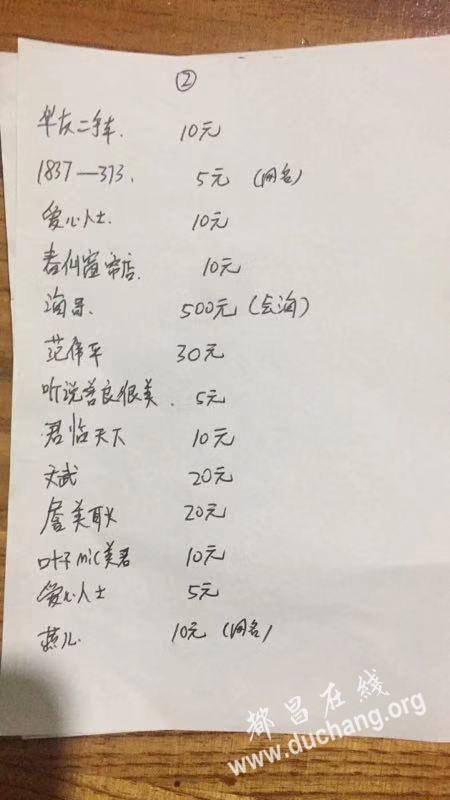 ②
华友二手车. 10元
1837—373. 5元 (网名)
爱心人士. 10元
春仙窗帘店. 10元
海哥. 500元 (云海)
范伟平 30元
听说善良很美. 5元
君临天下 10元
文武 20元
詹美耿 20元
叶子MiC美君 10元
爱心人士 5元
燕儿. 10元 (网名)
都昌在線
www.duchang.org